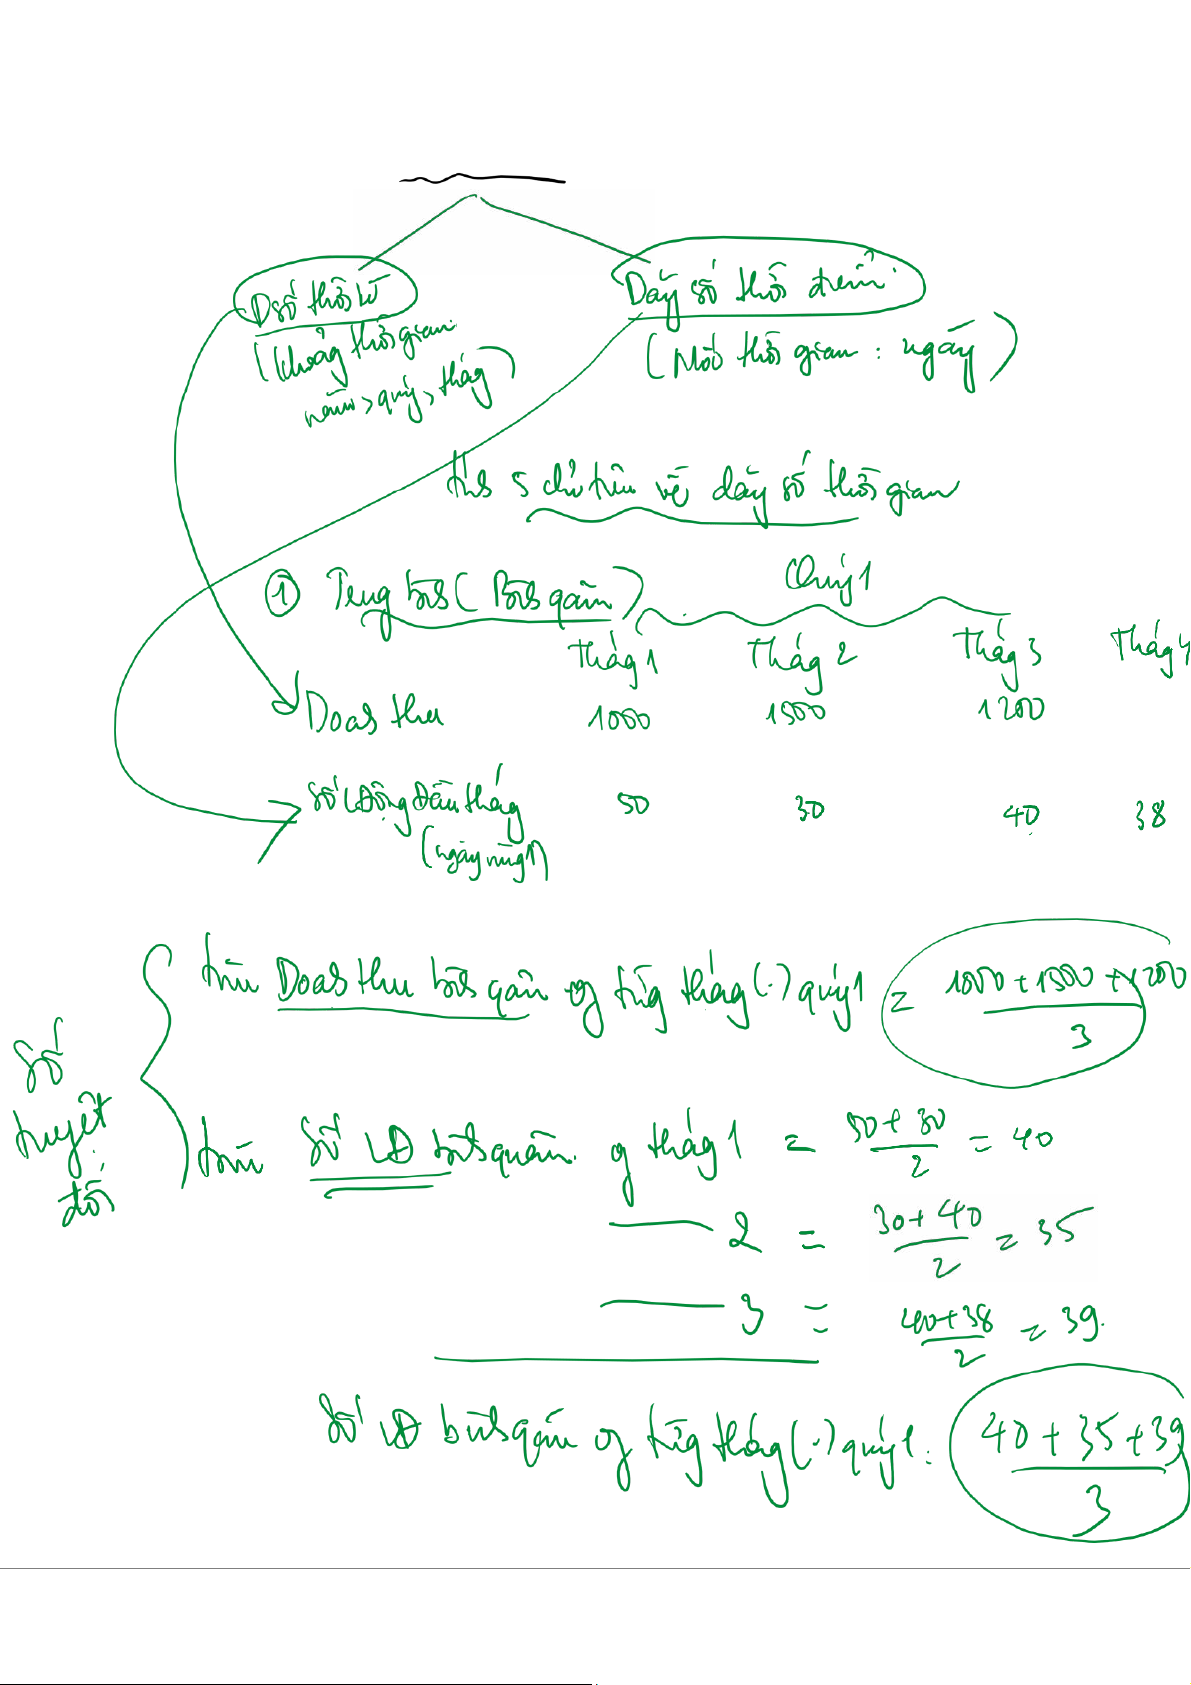 Dsố thời kì
Dãy số thời điểm.
(khoảng thời gian
năm, quý, tháng)
(Mốc thời gian : ngày)
5 chỉ tiêu về dãy số thời gian
① Trung bình (Bình quân)
Quý 1
Tháng 1 Tháng 2 Tháng 3 Tháng 4
Doanh thu 1000 1500 1200
Số lđộng đầu tháng 50 30 40 38
(ngày mùng 1)
tìm Doanh thu bình quân từng tháng (.) quý 1 = (1000 + 1500 + 1200) / 3
Số tuyệt đối
tìm Số LĐ bình quân tháng 1 = (50 + 30) / 2 = 40
2 = (30 + 40) / 2 = 35
3 = (40 + 38) / 2 = 39.
Số LĐ bình quân từng tháng (.) quý 1 : (40 + 35 + 39) / 3